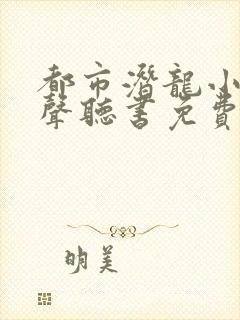 都市潛龍小
聲聽書免費
明美